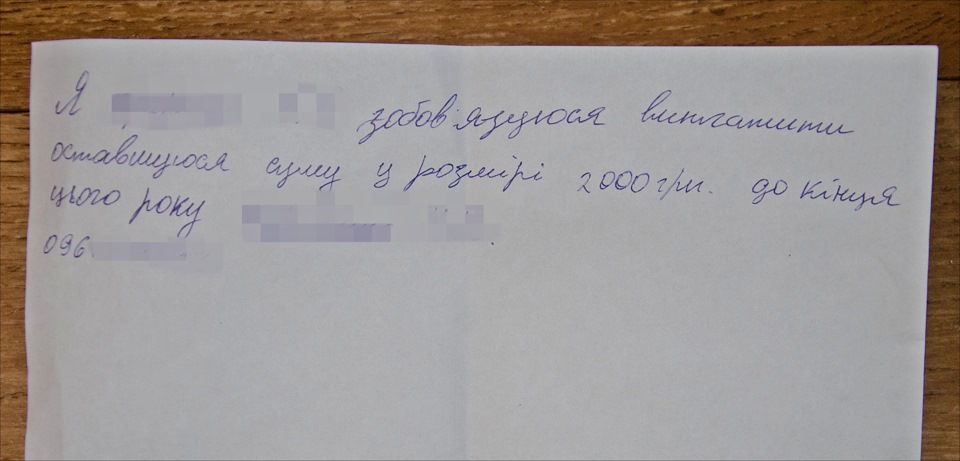 Я зобов'язуюся виплатити
оставшуюся суму у розмірі 2000 грн. до кінця
цього року
096